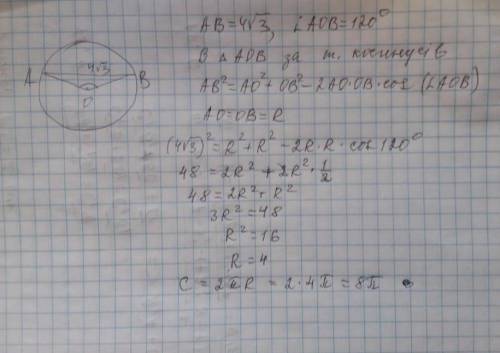 AB=4√3, ∠AOB=120°
В △ AOB за т. косинусів
AB²=AO²+OB²-2AO·OB·cos(∠AOB)
AO=OB=R
(4√3)²=R²+R²-2R·R·cos120°
48=2R²+2R²·1/2
48=2R²+R²
3R²=48
R²=16
R=4
C=2πR=2·4π=8π
A
4√3
B
O